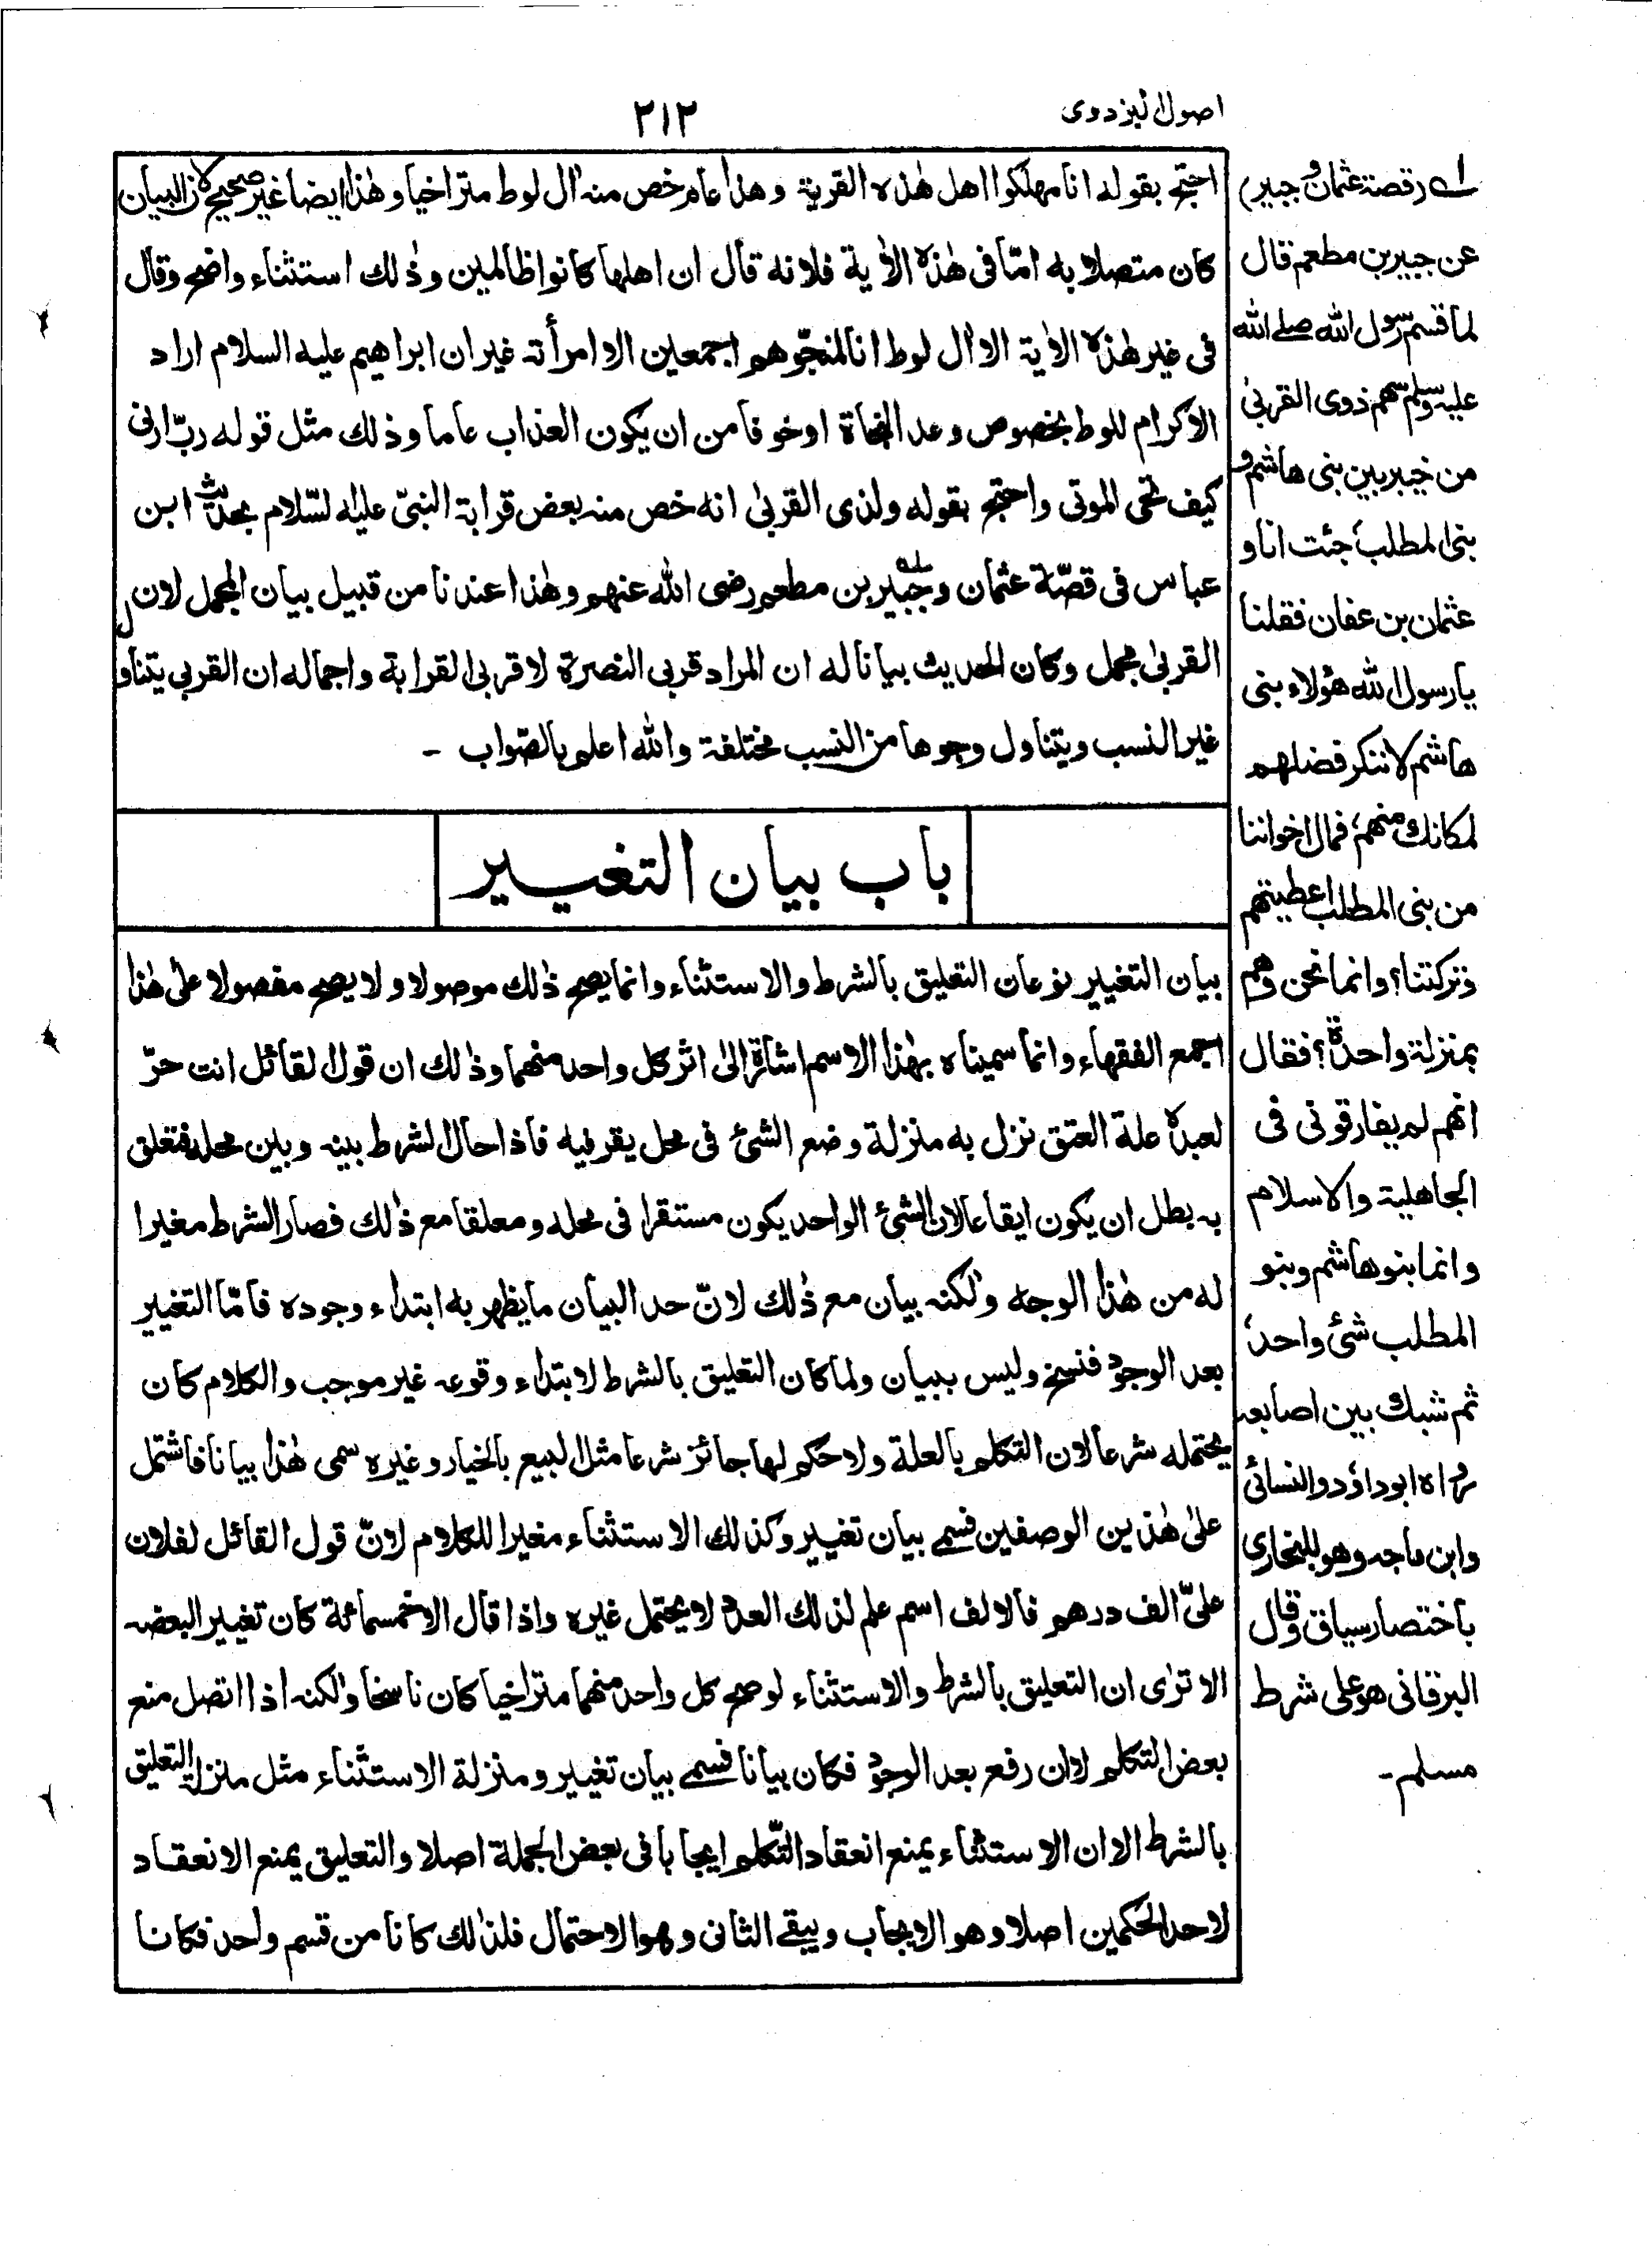 اصول البزدوى
٢١٢
احتج بقوله انا مهلكوا اهل هذه القرية وهذا عام خص منه ال لوط متراخيا وهذا ايضا غير صحيح لان البيان
كان متصلا به امّا فى هذه الاٰية فلانه قال ان اهلها كانوا ظالمين وذٰلك استثناء واضح وقال
فى غير هٰذه الاٰية الا اٰل لوط انا لمنجّوهم اجمعين الا امرأته غير ان ابراهيم عليه السلام اراد
الاكرام للوط بخصوص وعد النجاة او خوفا من ان يكون العذاب عاما وذلك مثل قوله ربّ ارنى
كيف تحى الموتى واحتج بقوله ولذى القربىٰ انه خص منه بعض قرابة النبىّ عليه السّلام بحديث ابن
عباس فى قصّة عثمان وجبير بن مطعم رضى الله عنهم وهٰذا عندنا من قبيل بيان المجمل لان
القربىٰ مجمل وكان الحديث بيانا له ان المراد قربى النصرة لا قربى القرابة واجماله ان القربى يتناول
غير النسب ويتناول وجوها من النسب مختلفة والله اعلم بالصّواب -
باب بيان التغيير
بيان التغيير نوعان التعليق بالشرط والاستثناء وانما يصح ذٰلك موصولا ولا يصح مفصولا على هٰذا
اجمع الفقهاء وانما سميناه بهٰذا الاسم اشارة الىٰ اثر كل واحد منهما وذالك ان قول القائل انت حرّ
لعبده علة العتق نزل به منزلة وضع الشئ فى محل يقر فيه فاذا حال الشرط بينه وبين محله فتعلق
به بطل ان يكون ايقاعا لان الشئ الواحد يكون مستقرا فى محله ومعلقا مع ذٰلك فصار الشرط مغيرا
له من هٰذا الوجه ولٰكنه بيان مع ذٰلك لانّ حد البيان ما يظهر به ابتداء وجوده فامّا التغيير
بعد الوجود فنسخ وليس ببيان ولما كان التعليق بالشرط لابتداء وقوعه غير موجب والكلام كان
يحتمله شرعا لان التكلم بالعلة ولا حكم لها جائز شرعا مثل البيع بالخيار وغيره سمى هٰذا بيانا فاشتمل
علىٰ هٰذين الوصفين فسمى بيان تغيير وكذلك الاستثناء مغيرا للكلام لانّ قول القائل لفلان
علىّ الف درهم فالالف اسم علم لذلك العدد لا يحتمل غيره واذا قال الا خمسمائة كان تغييرا لبعضه
الا ترٰى ان التعليق بالشرط والاستثناء لو صح كل واحد منهما متراخيا كان ناسخا ولٰكنه اذا اتصل منع
بعض التكلم لا ان رفع بعد الوجود فكان بيانا فسمى بيان تغيير ومنزلة الاستثناء مثل منزلة التعليق
بالشرط الا ان الاستثناء يمنع انعقاد التّكلم ايجابا فى بعض الجملة اصلا والتعليق يمنع الانعقاد
لاحد الحكمين اصلا وهو الايجاب ويبقى الثانى وهو الاحتمال فلذٰلك كانا من قسم واحد فكانا
له (قصة عثمان و جبير)
عن جبير بن مطعم قال
لما قسم رسول الله صلى الله
عليه وسلم سهم ذوى القربىٰ
من خيبر بين بنى هاشم و
بنى المطلب، جئت انا و
عثمان بن عفان فقلنا
يا رسول الله هٰؤلاء بنى
هاشم لا ننكر فضلهم
لمكانك منهم، فمال اخواننا
من بنى المطلب اعطيتهم
وتركتنا؟ وانما نحن وهم
بمنزلة واحدة؟ فقال
انهم لم يفارقونى فى
الجاهلية والاسلام
وانما بنو هاشم وبنو
المطلب شئ واحد،
ثم شبك بين اصابعه
رواه ابوداؤد والنسائى
وابن ماجه وهو للبخارى
باختصار سياق وقال
البرقانى هو على شرط
مسلم -